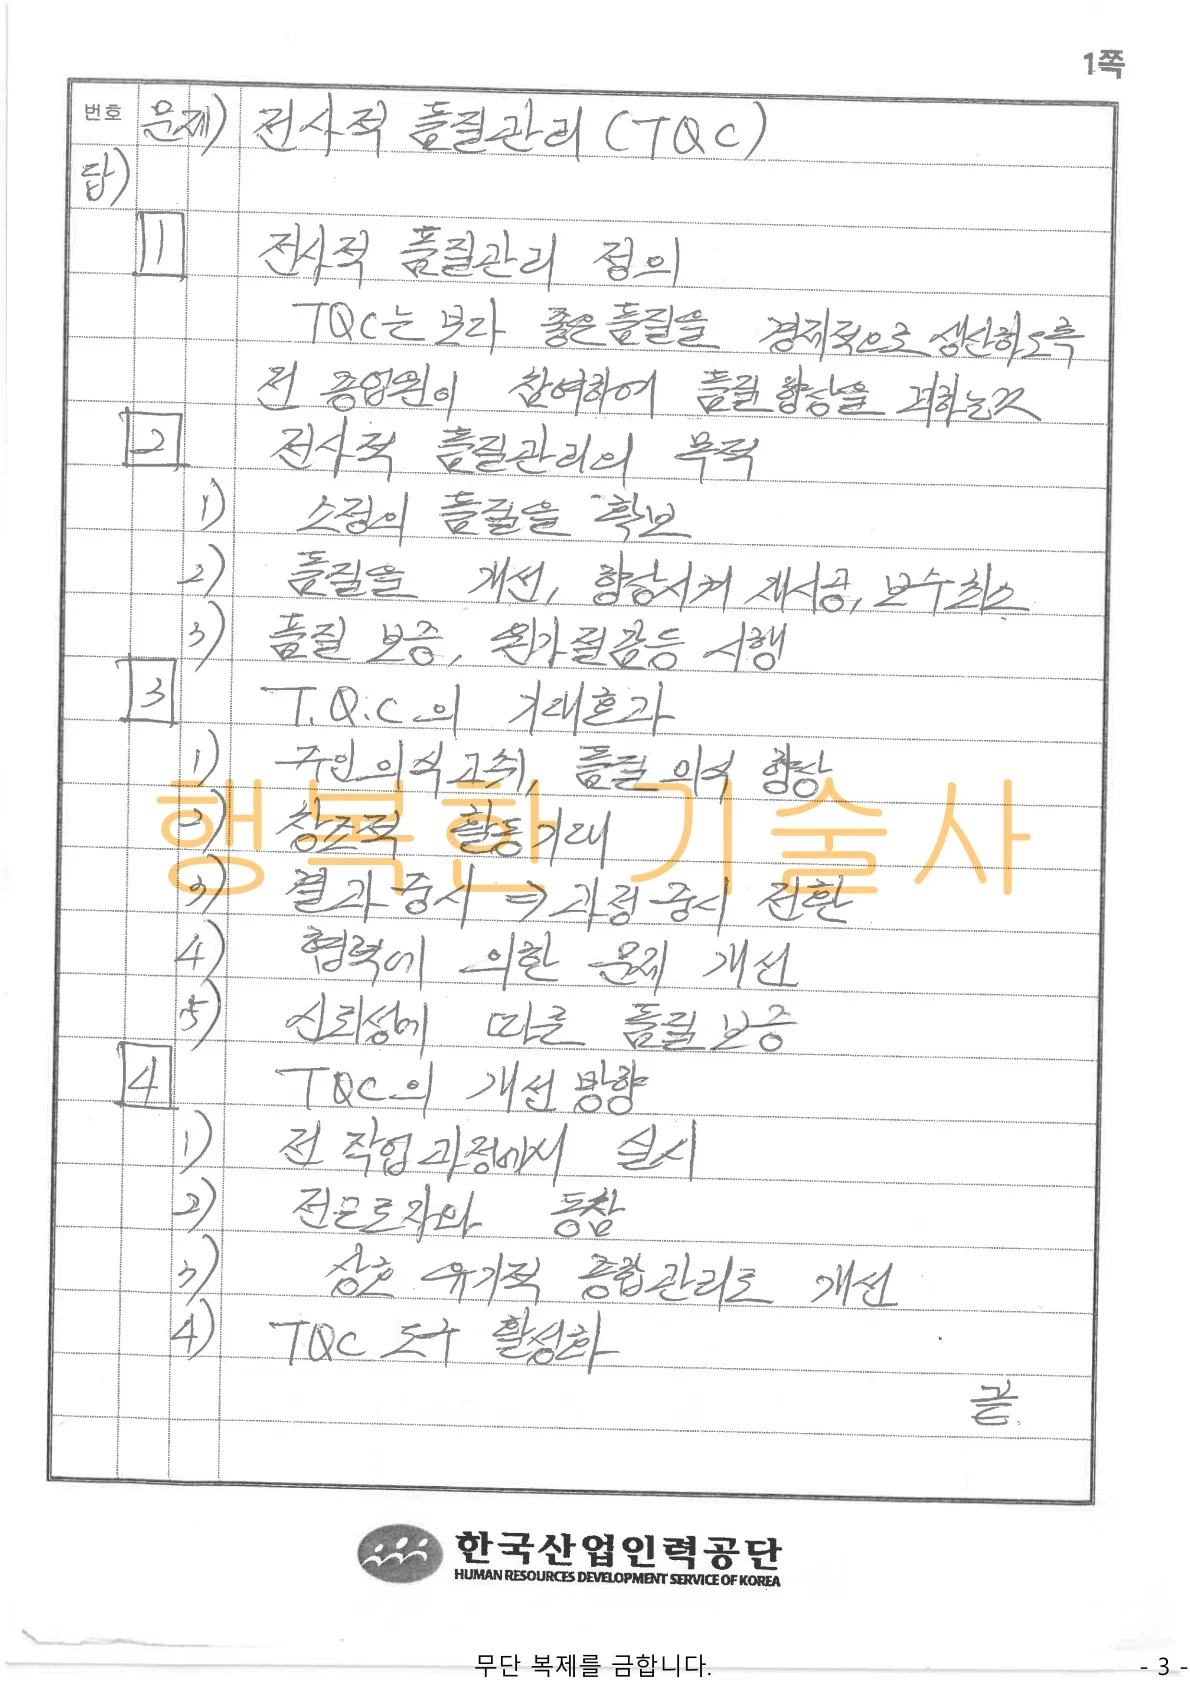 1쪽
번호 문제) 전사적 품질관리(TQC)
답)
1 전사적 품질관리 정의
TQC는 보다 좋은품질을 경제적으로 생산하도록
전 종업원이 참여하여 품질향상을 꾀하는것
2 전사적 품질관리의 목적
1) 소정의 품질을 확보
2) 품질을 개선, 향상시켜 재시공, 보수최소
3) 품질 보증, 원가절감등 시행
3 T.Q.C의 기대효과
1) 주인의식고취, 품질의식 향상
2) 창조적 활동기대
3) 결과중시 ⇒ 과정중시 전환
4) 협력에 의한 문제 개선
5) 신뢰성에 따른 품질보증
4 TQC의 개선방향
1) 전 작업과정에서 실시
2) 전근로자와 동참
3) 상호 유기적 종합관리로 개선
4) TQC 도구 활성화
끝.
행복한 기술사
한국산업인력공단
HUMAN RESOURCES DEVELOPMENT SERVICE OF KOREA
무단 복제를 금합니다.
- 3 -